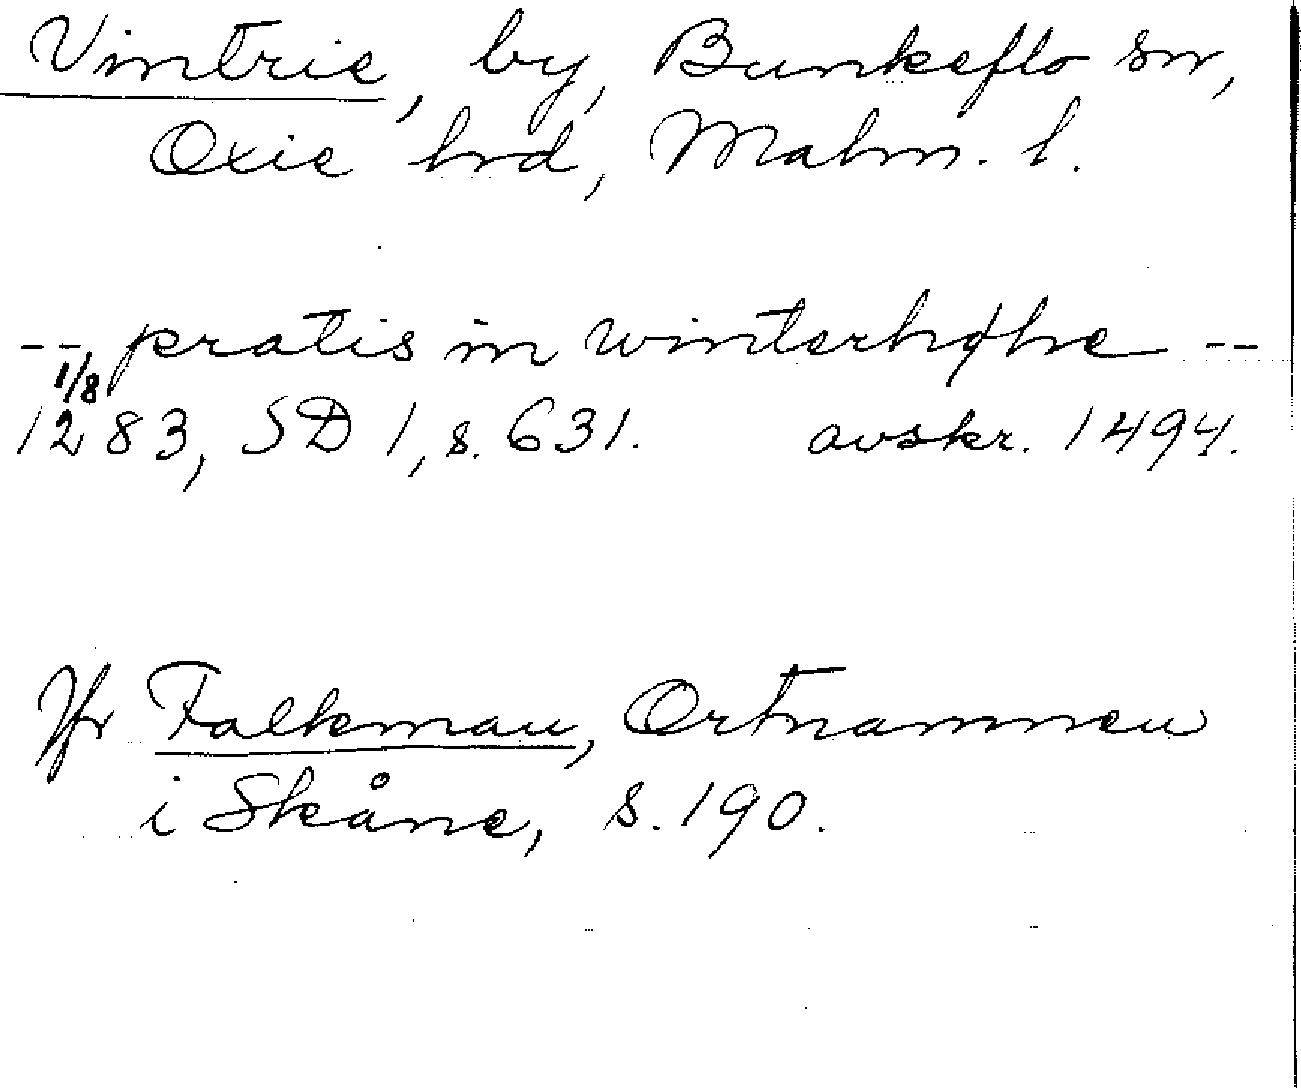 Vintrie, by, Bunkeflo sn,
Oxie hrd, Malm. l.
-- pratis in winterhøhe --
1/8
1283, SD 1, s. 631. avskr. 1494.
Jfr Falkman, Ortnamnen
i Skåne, s. 190.